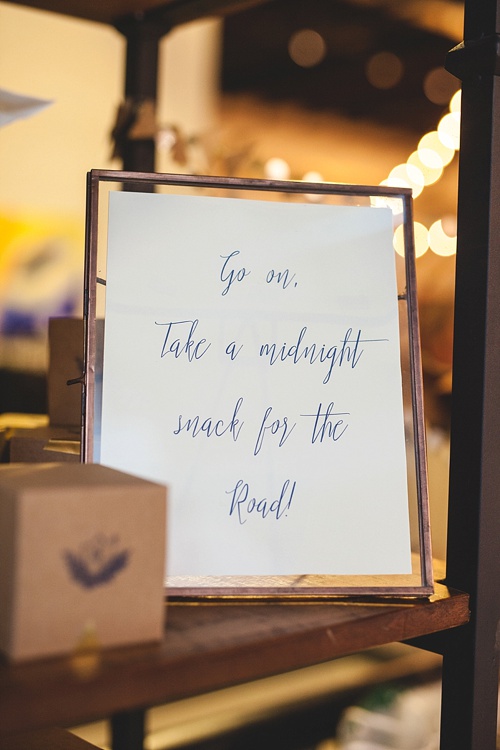 Go on,
Take a midnight
snack for the
Road!